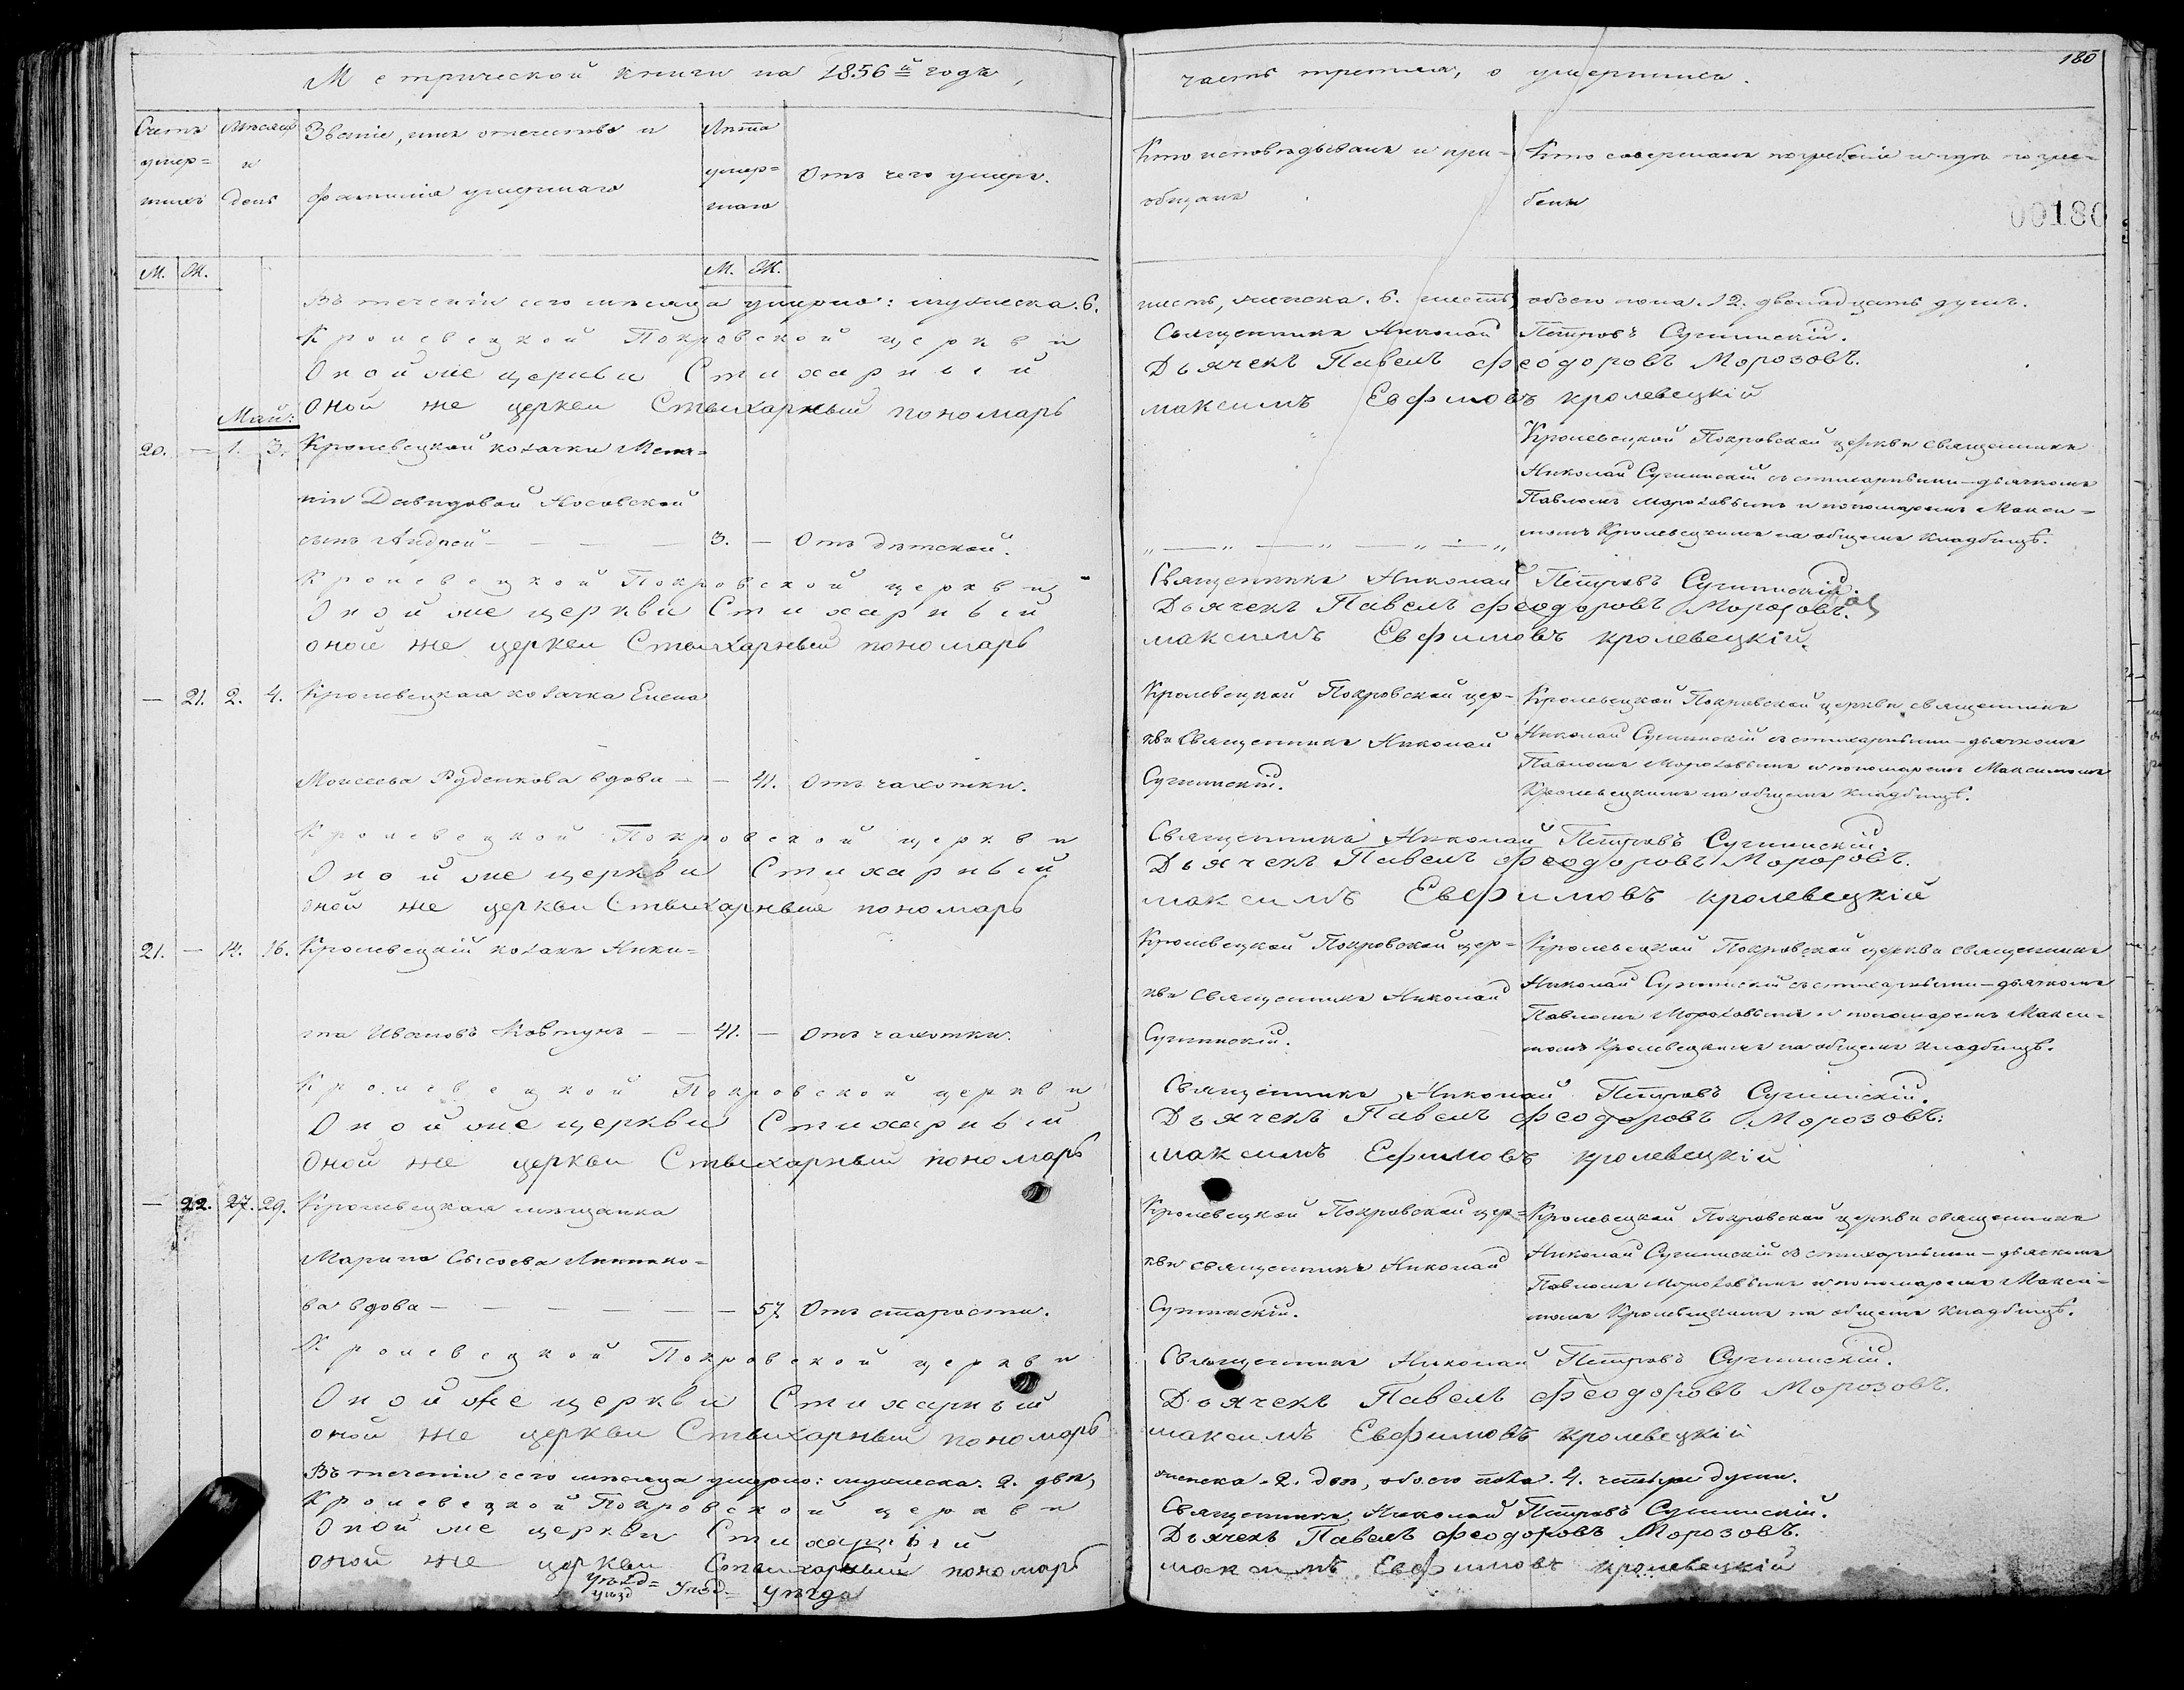 Метрической книги на 1856й годъ,
часть третья, о умершихъ.
180
Счетъ умер=шихъ
Мѣсяцъ и день
Званіе, имя отечество и
фамилія умершаго
Лѣта умер=шаго
Отъ чего умеръ.
Кто исповѣдывалъ и при-
общалъ
Кто совершалъ погребеніе и гдѣ погре-
бенъ
00180
М. Ж.
М. Ж.
Въ теченіи сего мѣсяца умерло: мужеска. 6. шесть, женска. 6. шесть, обоего пола. 12. двенадцать душъ.
Кролевецкой Покровской церкви Священникъ Николай Петровъ Сугинискій.
Оной же церкви Стихарный Дьячекъ Павелъ Феодоровъ Морозовъ.
Оной же церкви Стыхарный пономарь максимъ Евфимовъ кролевецкій
Май:
20. — 1. 3. Кролевецкой козачки Мела=
ніи Давидовой Носовской
сынъ Андрей — 3. — Отъ дѣтской.
Кролевецкой Покровской церкви священникъ
Николай Сугинискій съ стихарными — дьячкомъ
Павломъ Морозовымъ и пономаремъ Макси=
момъ Кролевецкимъ на общемъ кладбищѣ.
Кролевецкой Покровской церкви Священникъ Николай Петровъ Сугинискій.
Оной же церкви Стихарный Дьячекъ Павелъ Феодоровъ Морозовъ.
оной же церкви Стыхарный пономарь максимъ Евфимовъ кролевецкій.
— 21. 2. 4. Кролевецкая козачка Елена
Моисеева Руденкова вдова — — 41. Отъ чахотки.
Кролевецкой Покровской цер-
кви Священникъ Николай
Сугинискій.
Кролевецкой Покровской церкви священникъ
Николай Сугинискій съ стихарными — дьячкомъ
Павломъ Морозовымъ и пономаремъ Максимомъ
Кролевецкимъ на общемъ кладбищѣ.
Кролевецкой Покровской церкви Священникъ Николай Петровъ Сугинискій.
Оной же церкви Стихарный Дьячекъ Павелъ Феодоровъ Морозовъ.
Оной же церкви Стыхарный пономарь максимъ Евфимовъ кролевецкій
21. — 14. 16. Кролевецкій козакъ Ники=
та Ивановъ Ковтунъ — — 41. — Отъ чахотки.
Кролевецкой Покровской цер=
кви священникъ Николай
Сугинискій.
Кролевецкой Покровской церкви священникъ
Николай Сугинискій съ стихарными — дьячкомъ
Павломъ Морозовымъ и пономаремъ Макси=
момъ Кролевецкимъ на общемъ кладбищѣ.
Кролевецкой Покровской церкви Священникъ Николай Петровъ Сугинискій.
Оной же церкви Стихарный Дьячекъ Павелъ Феодоровъ Морозовъ.
Оной же церкви Стыхарный пономарь максимъ Ефимовъ кролевецкій
— 22. 27. 29. Кролевецкая мѣщанка
Марина Сысоева
ва вдова — 57. Отъ старости.
Кролевецкой Покровской цер=
кви священникъ Николай
Сугинискій.
Кролевецкой Покровской церкви священникъ
Николай Сугинискій съ стихарными — дьячкомъ
Павломъ Морозовымъ и пономаремъ Макси=
момъ Кролевецкимъ на общемъ кладбищѣ.
Кролевецкой Покровской церкви Священникъ Николай Петровъ Сугинискій.
Оной же церкви Стихарный Дьячекъ Павелъ Феодоровъ Морозовъ.
оной же церкви Стыхарный пономарь максимъ Евфимовъ кролевецкій
Въ теченіи сего мѣсяца умерло: мужеска. 2. два, женска. 2. две, обоего пола. 4. четыре души.
Кролевецкой Покровской церкви Священникъ Николай Петровъ Сугинискій.
Оной же церкви Стихарный Дьячекъ Павелъ Феодоровъ Морозовъ.
оной же церкви Стыхарный пономарь максимъ Евфимовъ кролевецкій